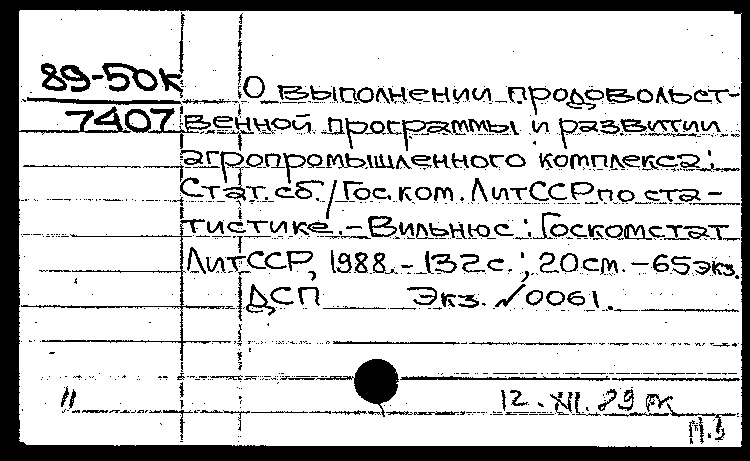 89-50К О выполнении продовольст-
7407 венной программы и развитии
агропромышленного комплекса:
Стат. сб./Гос.ком. ЛитССР по ста-
тистике.-Вильнюс: Госкомстат
ЛитССР, 1988.-132с.; 20см.-65экз.
ДСП Экз. №0061.
12.XII.89